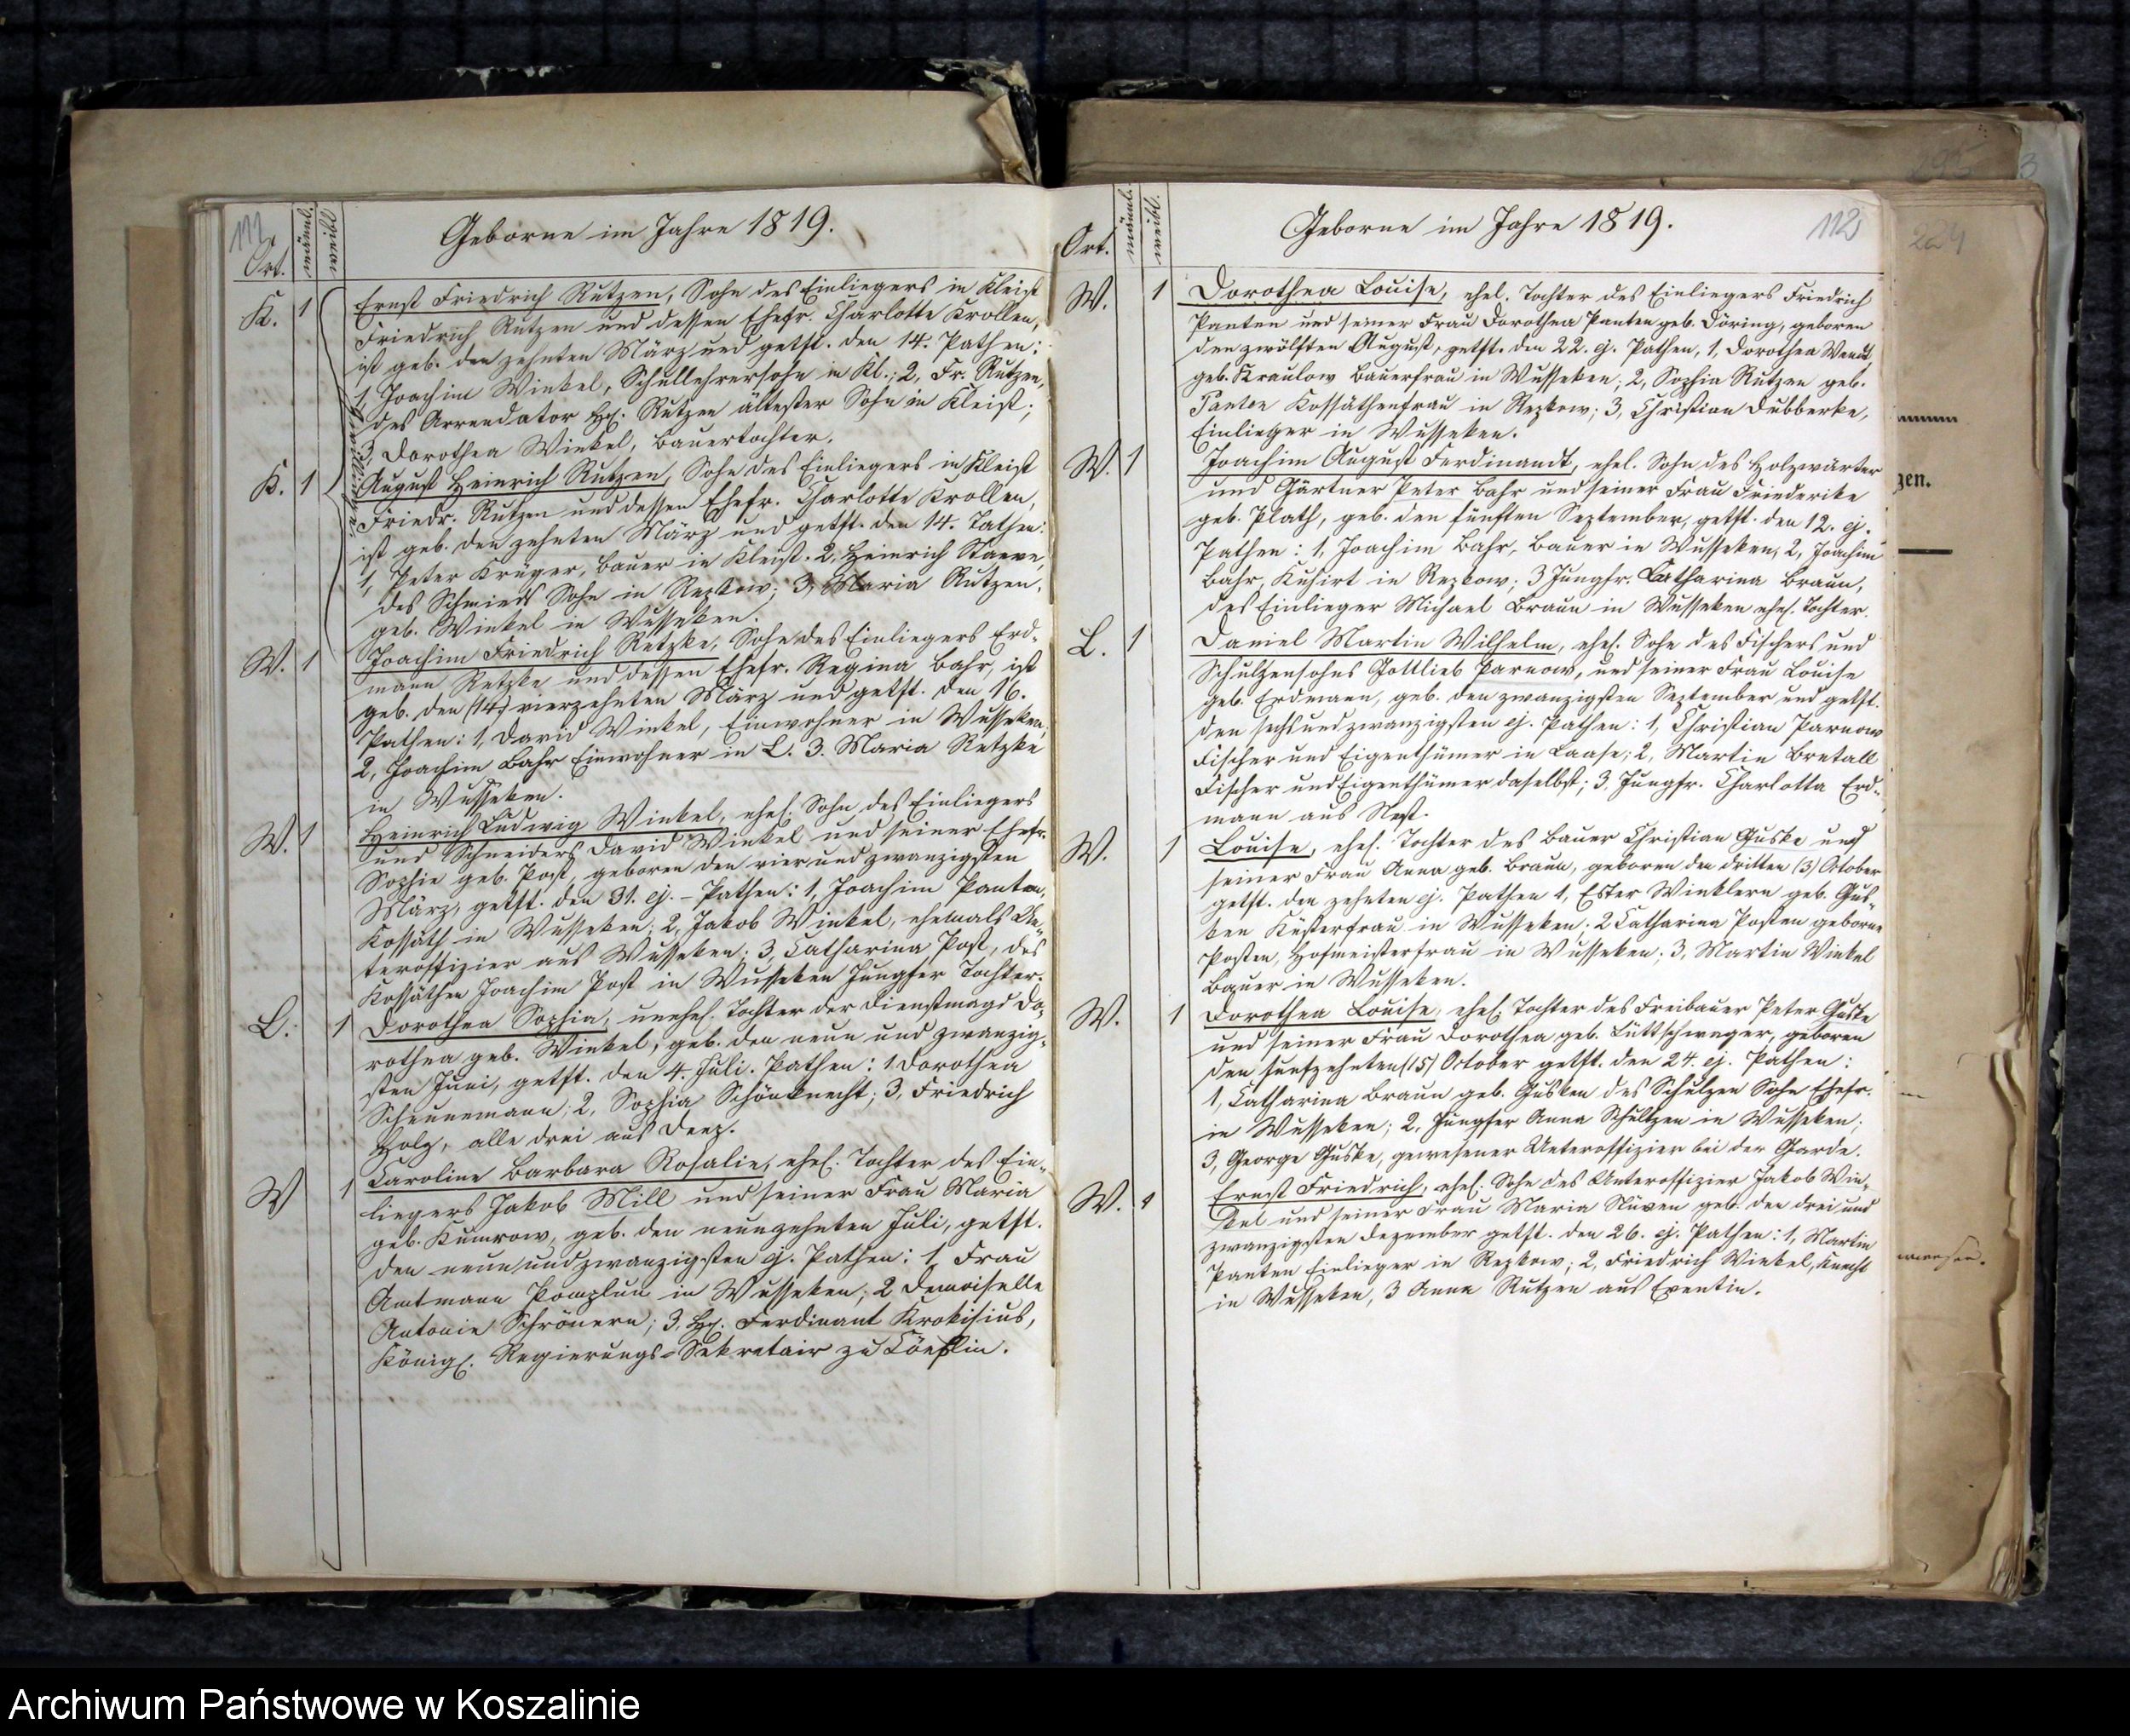 111
Ort.
männl.
weibl.
Geborne im Jahre 1819.
K. 1 Ernst Friedrich Rutzen, Sohn des Einliegers in Kleist
Friedrich Rutzen und dessen Ehefr. Charlotte Krollen,
ist geb. den zehnten März und getft. den 14. Pathen:
1, Joachim Winkel, Schullehrersohn in Kl.; 2, Fr. Rutzen,
des Arrendator H. Rutzen ältester Sohn in Kleist;
3 Dorothea Winkel, Bauertochter.
K. 1 August Heinrich Rutzen, Sohn des Einliegers in Kleist
Friedr. Rutzen und dessen Ehefr. Charlotte Krollen,
ist geb. den zehnten März und getft. den 14. Pathen:
1, Peter Krüger, Bauer in Kleist. 2, Heinrich Staeve,
des Schmieds Sohn in Repkow; 3, Maria Rutzen,
geb. Winkel in Wusseken.
W. 1 Joachim Friedrich Retzke, Sohn des Einliegers Erd-
mann Retzke und dessen Ehefr. Regina Bahr, ist
geb. den (14) vierzehnten März und getft. den 16.
Pathen: 1, David Winkel, Einwohner in Wusseken,
2, Joachim Bahr Einwohner in L. 3. Maria Retzke
in Wusseken.
W. 1 Heinrich Ludwig Winkel, ehel. Sohn des Einliegers
und Schneiders David Winkel und seiner Ehefr.
Sophie geb. Post, geboren den vier und zwanzigsten
März, getft. den 31. ej. – Pathen: 1, Joachim Panten,
Kossäth in Wusseken; 2, Jakob Winkel, ehemals Un-
teroffizier aus Wusseken; 3, Catharina Post, des
Kossäthen Joachim Post in Wusseken Jungfer Tochter.
L. 1 Dorothea Sophia, unehel. Tochter der Dienstmagd Do-
rothea geb. Winkel, geb. den neun und zwanzig-
sten Juni, getft. den 4. Juli. Pathen: 1 Dorothea
Scheunemann; 2, Sophia Schönknecht; 3, Friedrich
Holz, alle drei aus Deep.
W 1 Caroline Barbara Rosalie, ehel. Tochter des Ein-
liegers Jakob Mill und seiner Frau Maria
geb. Kumrow, geb. den neunzehnten Juli, getft.
den neun und zwanzigsten ej. Pathen: 1, Frau
Amtmann Pomplun in Wusseken; 2 Demoiselle
Antonie Schrönern; 3, H. Ferdinant Krokisius,
Königl. Regierungs-Sekretair zu Cöslin.
Ort.
männl.
weibl.
Geborne im Jahre 1819.
112
W. 1 Dorothea Louise, ehel. Tochter des Einliegers Friedrich
Panten und seiner Frau Dorothea Panten geb. Döring, geboren
den zwölften August, getft. den 22. ej. Pathen, 1, Dorothea Wendt
geb. Kraulow Bauerfrau in Wusseken; 2, Sophia Rutzen geb.
Panten Kossäthenfrau in Repkow; 3, Christian Dubberke,
Einlieger in Wusseken.
W. 1 Joachim August Ferdinandt, ehel. Sohn des Holzwärter
und Gärtner Peter Bahr und seiner Frau Friederike
geb. Plath, geb. den fünften September, getft. den 12. ej.
Pathen: 1, Joachim Bahr, Bauer in Wusseken, 2, Joachim
Bahr, Kuhirt in Repkow; 3 Jungfr. Catharina Braun,
des Einlieger Michael Braun in Wusseken ehel. Tochter.
L. 1 Daniel Martin Wilhelm, ehel. Sohn des Fischers und
Schulzensohns Gottlieb Parnow, und seiner Frau Louise
geb. Erdmann, geb. den zwanzigsten September und getft.
den sechs und zwanzigsten ej. Pathen: 1, Christian Parnow
Fischer und Eigenthümer in Laase; 2, Martin Bretall
Fischer und Eigenthümer daselbst; 3, Jungfr. Charlotta Erd-
mann aus Nest.
W. 1 Louise, ehel. Tochter des Bauer Christian Guske und
seiner Frau Anna geb. Braun, geboren den dritten (3) October
getft. den zehnten ej. Pathen 1, Ester Winklern geb. Gus-
ken Küsterfrau in Wusseken; 2 Catharina Posten geborne
Posten, Hofmeisterfrau in Wusseken; 3, Martin Winkel
Bauer in Wusseken.
W. 1 Dorothea Louise, ehel. Tochter des Freibauer Peter Guske
und seiner Frau Dorothea geb. Lüttschwager, geboren
den funfzehnten (15) October getft. den 24. ej. Pathen:
1, Catharina Braun geb. Gusken des Schulzen Sohn Ehefr.
in Wusseken; 2, Jungfer Anna Schultzen in Wusseken;
3, George Guske, gewesener Unteroffizier bei der Garde.
W. 1 Ernst Friedrich, ehel. Sohn des Unteroffizier Jakob Win-
kel und seiner Frau Maria Stüven geb. den drei und
zwanzigsten Dezember getft. den 26. ej. Pathen: 1, Martin
Panten Einlieger in Repkow; 2, Friedrich Winkel, Knecht
in Wusseken, 3 Anna Rutzen aus Eventin.
224
gen.
Archiwum Państwowe w Koszalinie